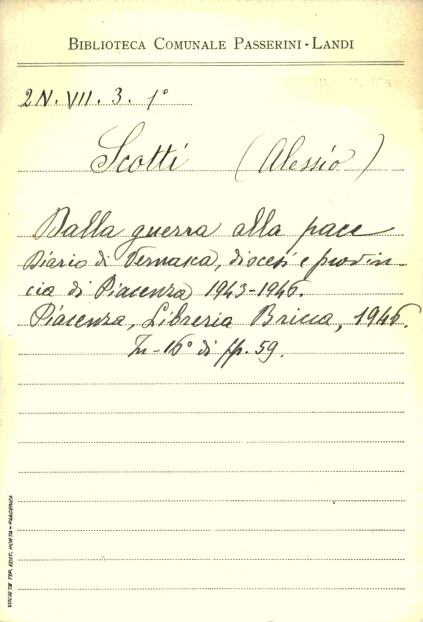 BIBLIOTECA COMUNALE PASSERINI-LANDI
2N. VII. 3. 1°
Scotti (Alessio)
Dalla guerra alla pace
Diario di Vernasca, diocesi e provin-
cia di Piacenza 1943-1946.
Piacenza, Libreria Bricca, 1946.
In-16° di pp. 59.
SOCIETÀ TIP. EDIT. PORTA - PIACENZA